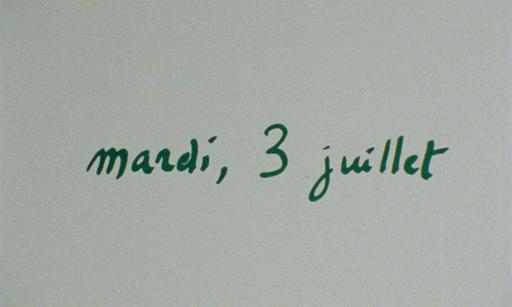 mardi, 3 juillet